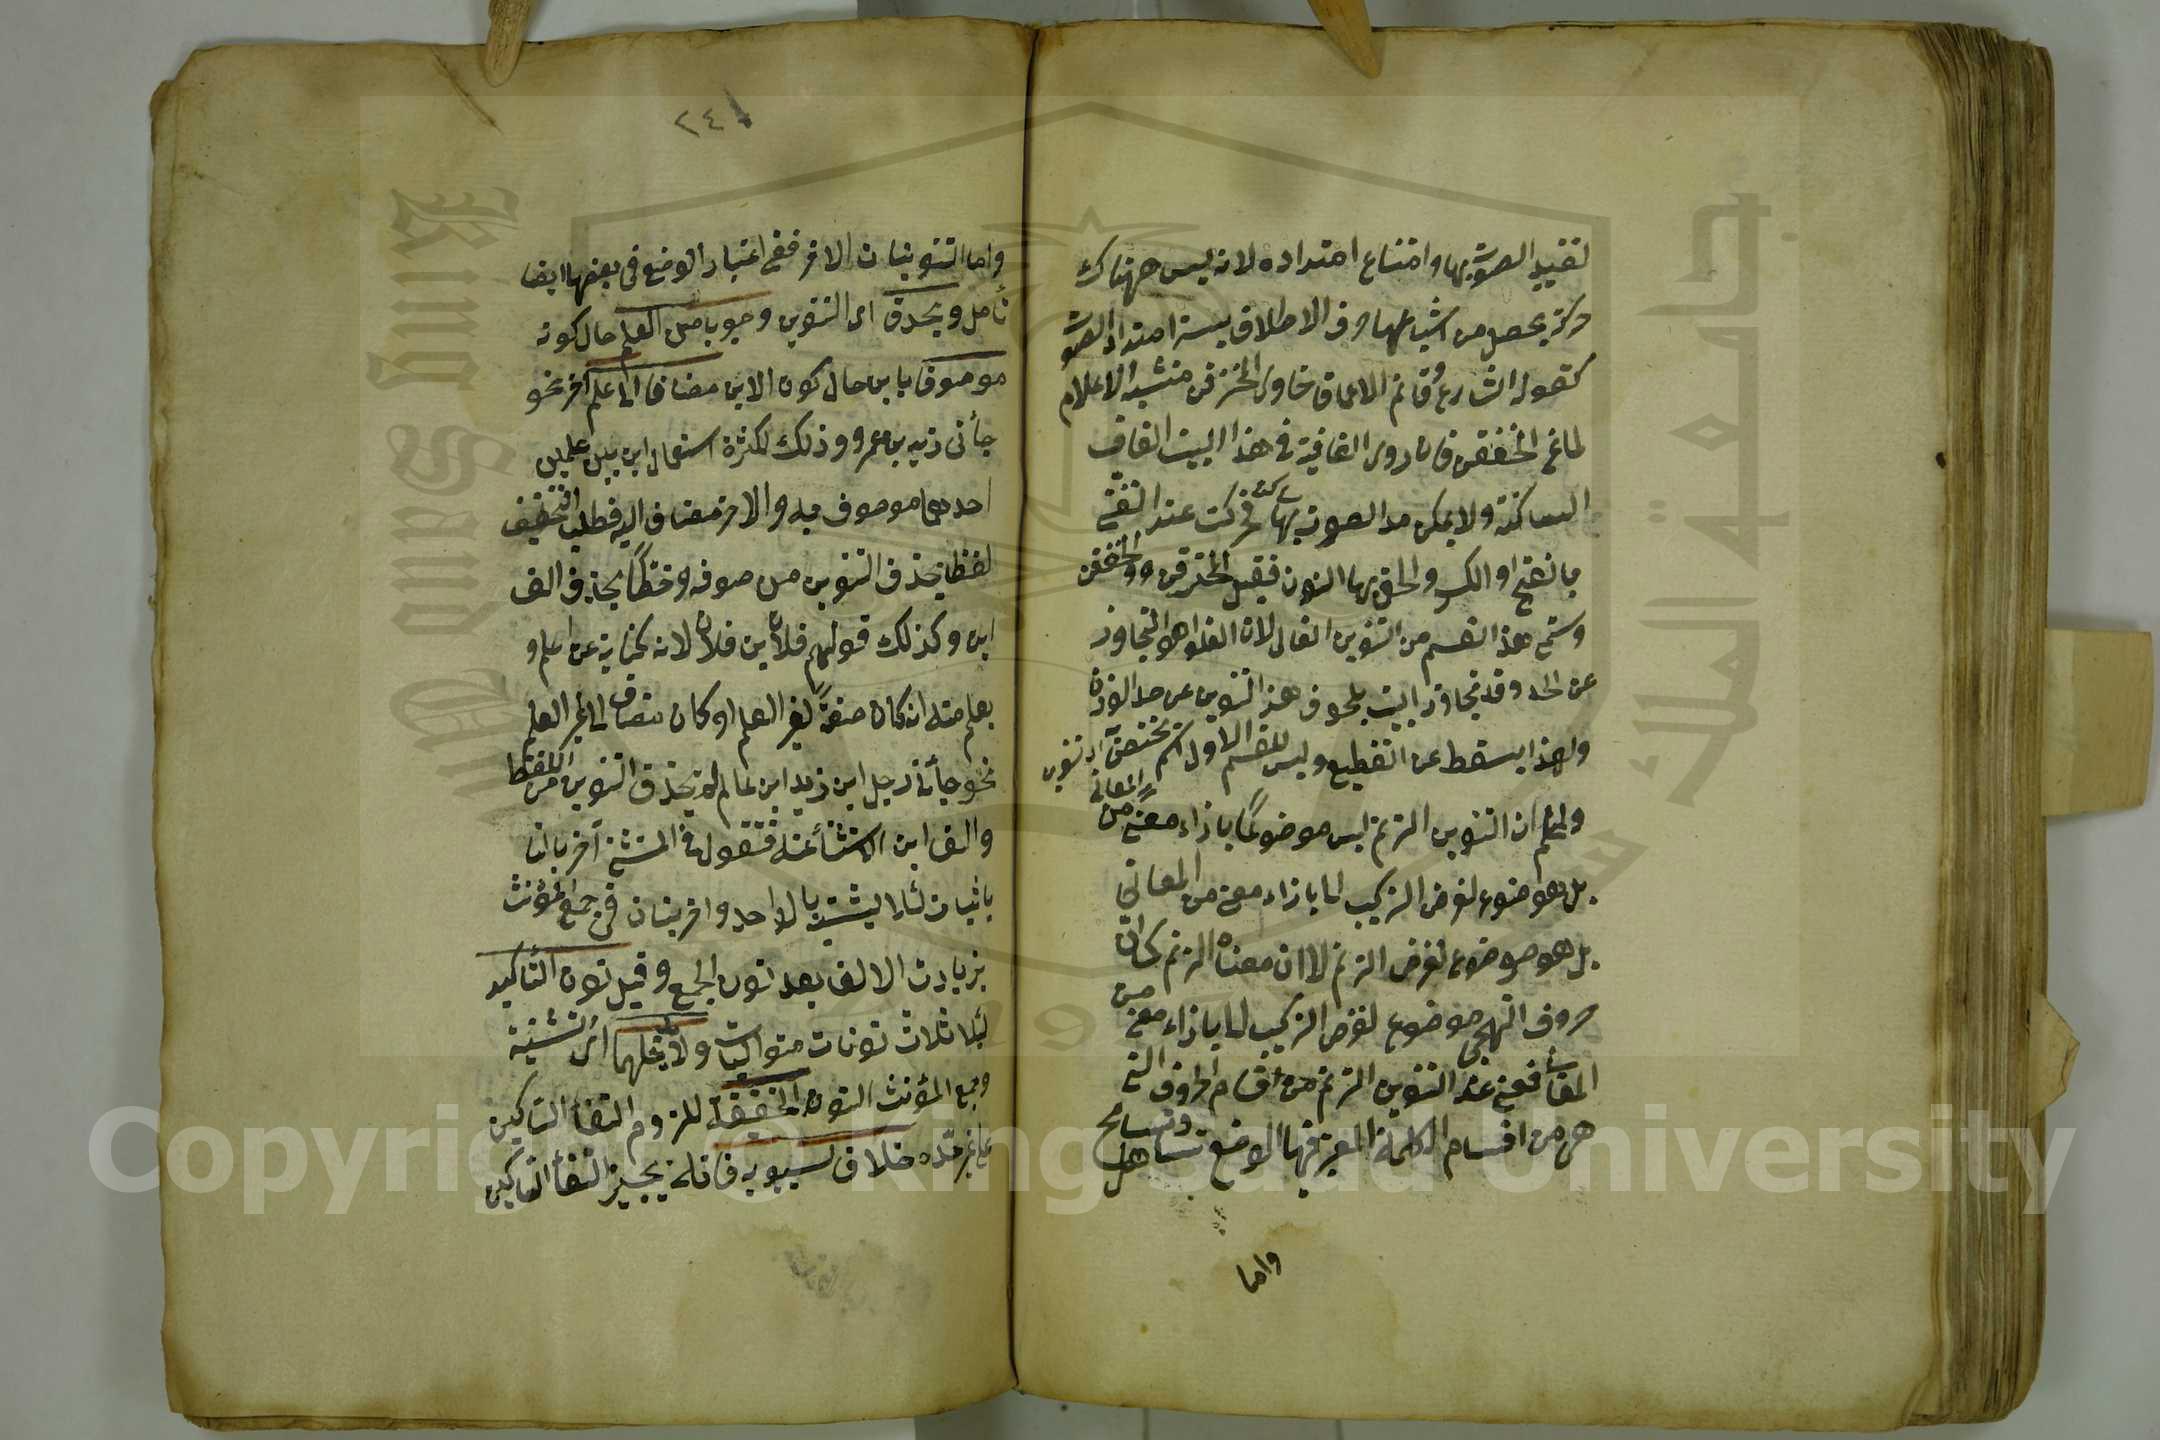 لتقييد الصوت بها وامتناع امتداده لانه ليس ههناك
حركة يحصل من اشباعها وفي الاطلاق يسير امتداد الصوت
كقوله الشارع وقاتم الاعماق خاوي المخترقن مشتبه الاعلام
لماع الخفقن فان روي القافية في هذا البيت القاف
الساكنة ولا يمكن مد الصوت بها فحركت عند التغني
بالفتح او الكسر والحق بها النون فقيل المخترقن والخفقن
وسمي هذا القسم من التنوين الغالي لان الغلو هو التجاوز
عن الحد وقد تجاوز البيت بلحوق هذا التنوين عن حد الوزن
ولهذا يسقط عن التقطيع وليس للقسم الاول اسم يختص به اي تنوين
واعلم ان التنوين الترنم ليس موضوعا بازاء معنى من المعاني
بل هو موضوع لغرض التركيب لما بازاء معنى من المعاني
بل هو موضوع لغرض الترنم لا ان معناه الترنم كما ان
حروف التهجي موضوع لغرض التركيب لما بازاء معنى من
المعاني ففي عد التنوين الترنم من اقسام الحروف التي
هي من اقسام الكلمة المعتبر فيها الوضع تساهل وتسامح
واما
٢٤١
واما التنوينات الاخر ففي اعتبار الوضع في بعضها ايضا
تأمل ويحذف اي التنوين وجوبا من العلم حال كونه
موصوفا بابن حال كون الابن مضافا الى علم آخر نحو
جأني زيد بن عمرو وذلك لكثرة استعمال ابن بين علمين
احدهما موصوف به والاخر مضاف اليه فطلب التخفيف
لفظا بحذف التنوين من موصوفه وخطا بحذف الف
ابن وكذلك قولهم فلان بن فلان لانه كناية عن علم و
يعلم منه انه كان صفة لغير العلم او كان مضاف الى غير العلم
نحو جأني رجل ابن زيد وزيد ابن عالم لم يحذف التنوين من اللفظ
والف ابن
بأثبات لئلا يشتبه بالواحد واضربنان في جمع المؤنث
بزيادت الالف بعد نون الجمع وقبل نون التأكيد
لئلا ثلاث نونات متواليات ولا يدخلهما اي التثنية
وجمع المؤنث النون الخفيفة للزوم التقأ الساكنين
على غير حده خلاف لسيبويه فانه يجيز التقأ الساكنين
Copyright © King Saud University
King Saud University
جامعة الملك سعود